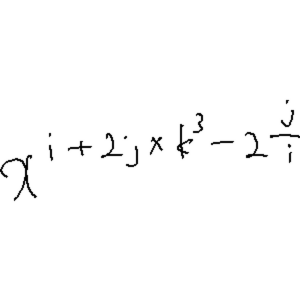 x^{i + 2j × k^3 − 2\frac{j}{i}}